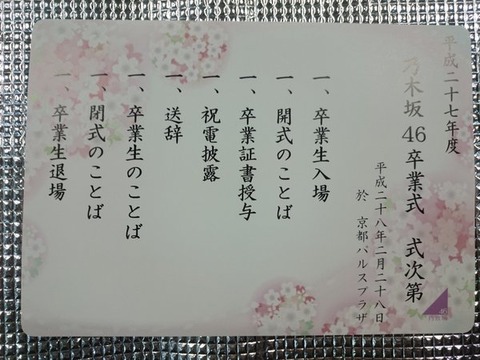 平成二十七年度
乃木坂46卒業式 式次第
平成二十八年二月二十八日
於 京都パルスプラザ
一、卒業生入場
一、開式のことば
一、卒業証書授与
一、祝電披露
一、送辞
一、卒業生のことば
一、閉式のことば
一、卒業生退場